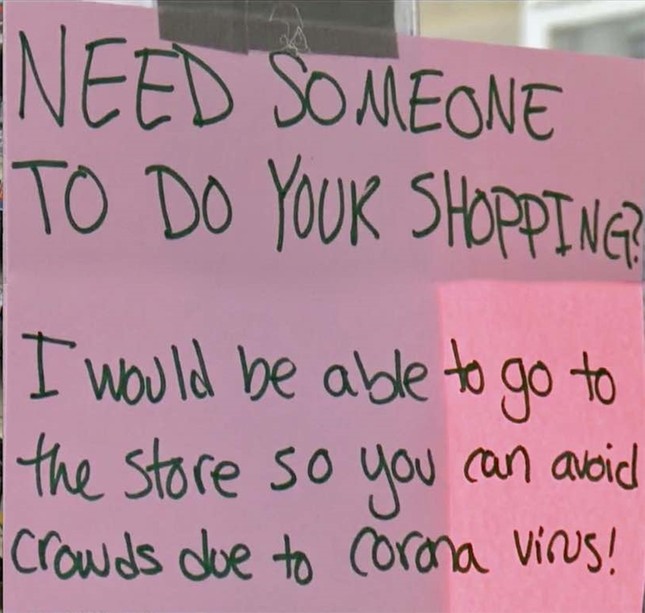 NEED SOMEONE
TO DO YOUR SHOPPING?
I would be able to go to
the store so you can avoid
crowds due to corona virus!